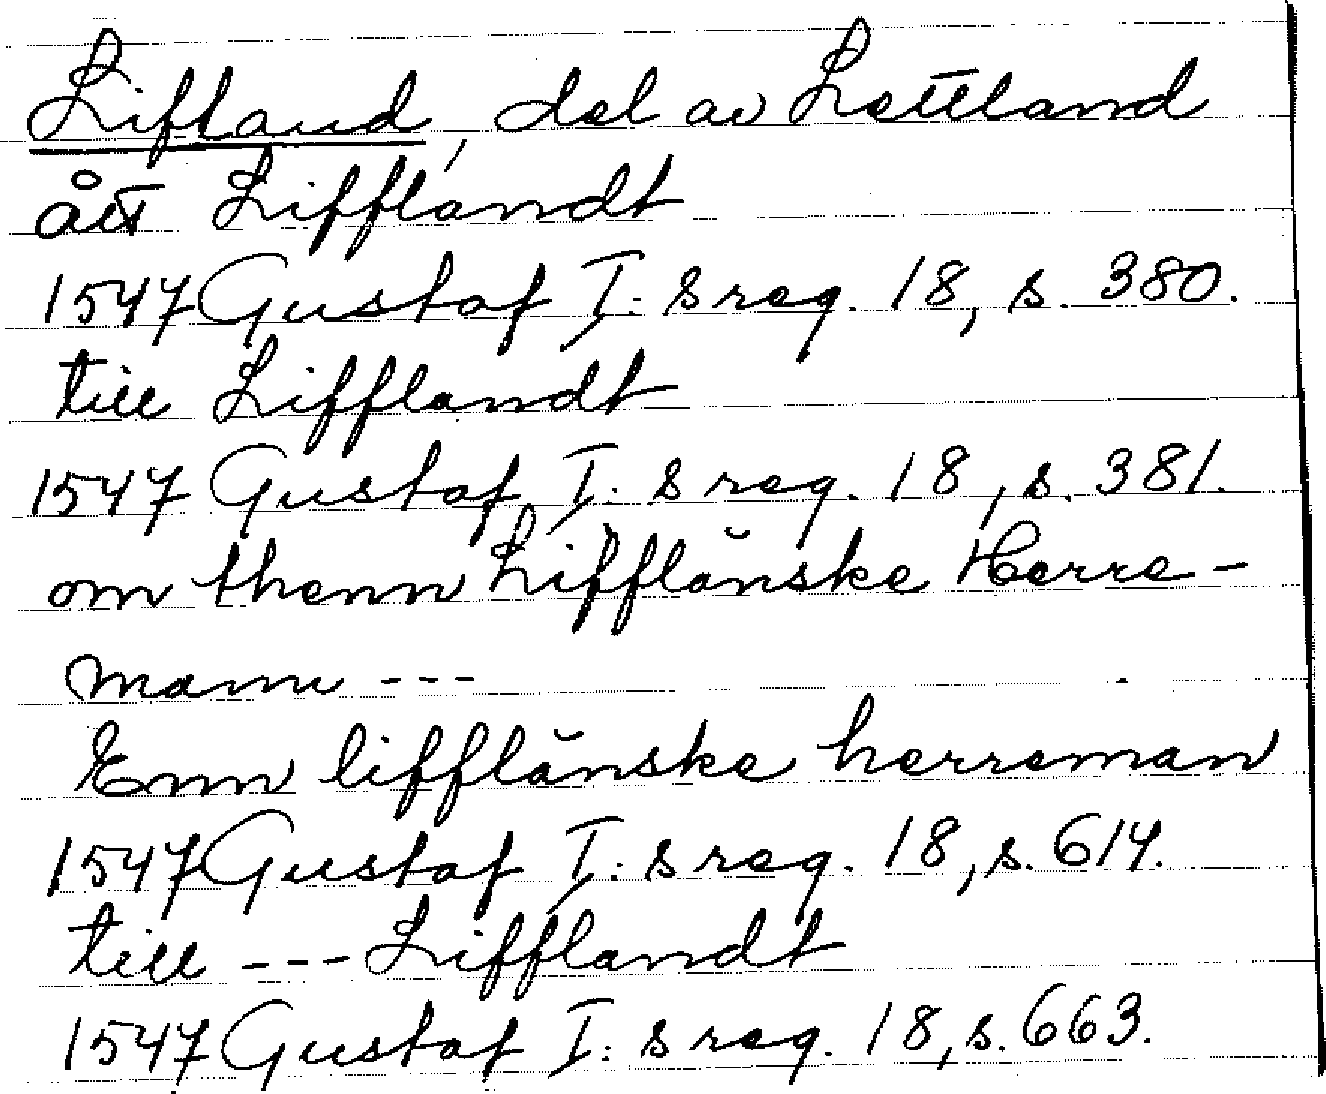 Lifland, del av Lettland
ått Lifflandt
1547 Gustaf I:s reg. 18, s. 380.
till Lifflandt
1547 Gustaf I:s reg. 18, s. 381.
om thenn Lifflänske Herre-
mann ---
Enn lifflänske herreman
1547 Gustaf I:s reg. 18, s. 614.
till --- Lifflandt
1547 Gustaf I:s reg. 18, s. 663.